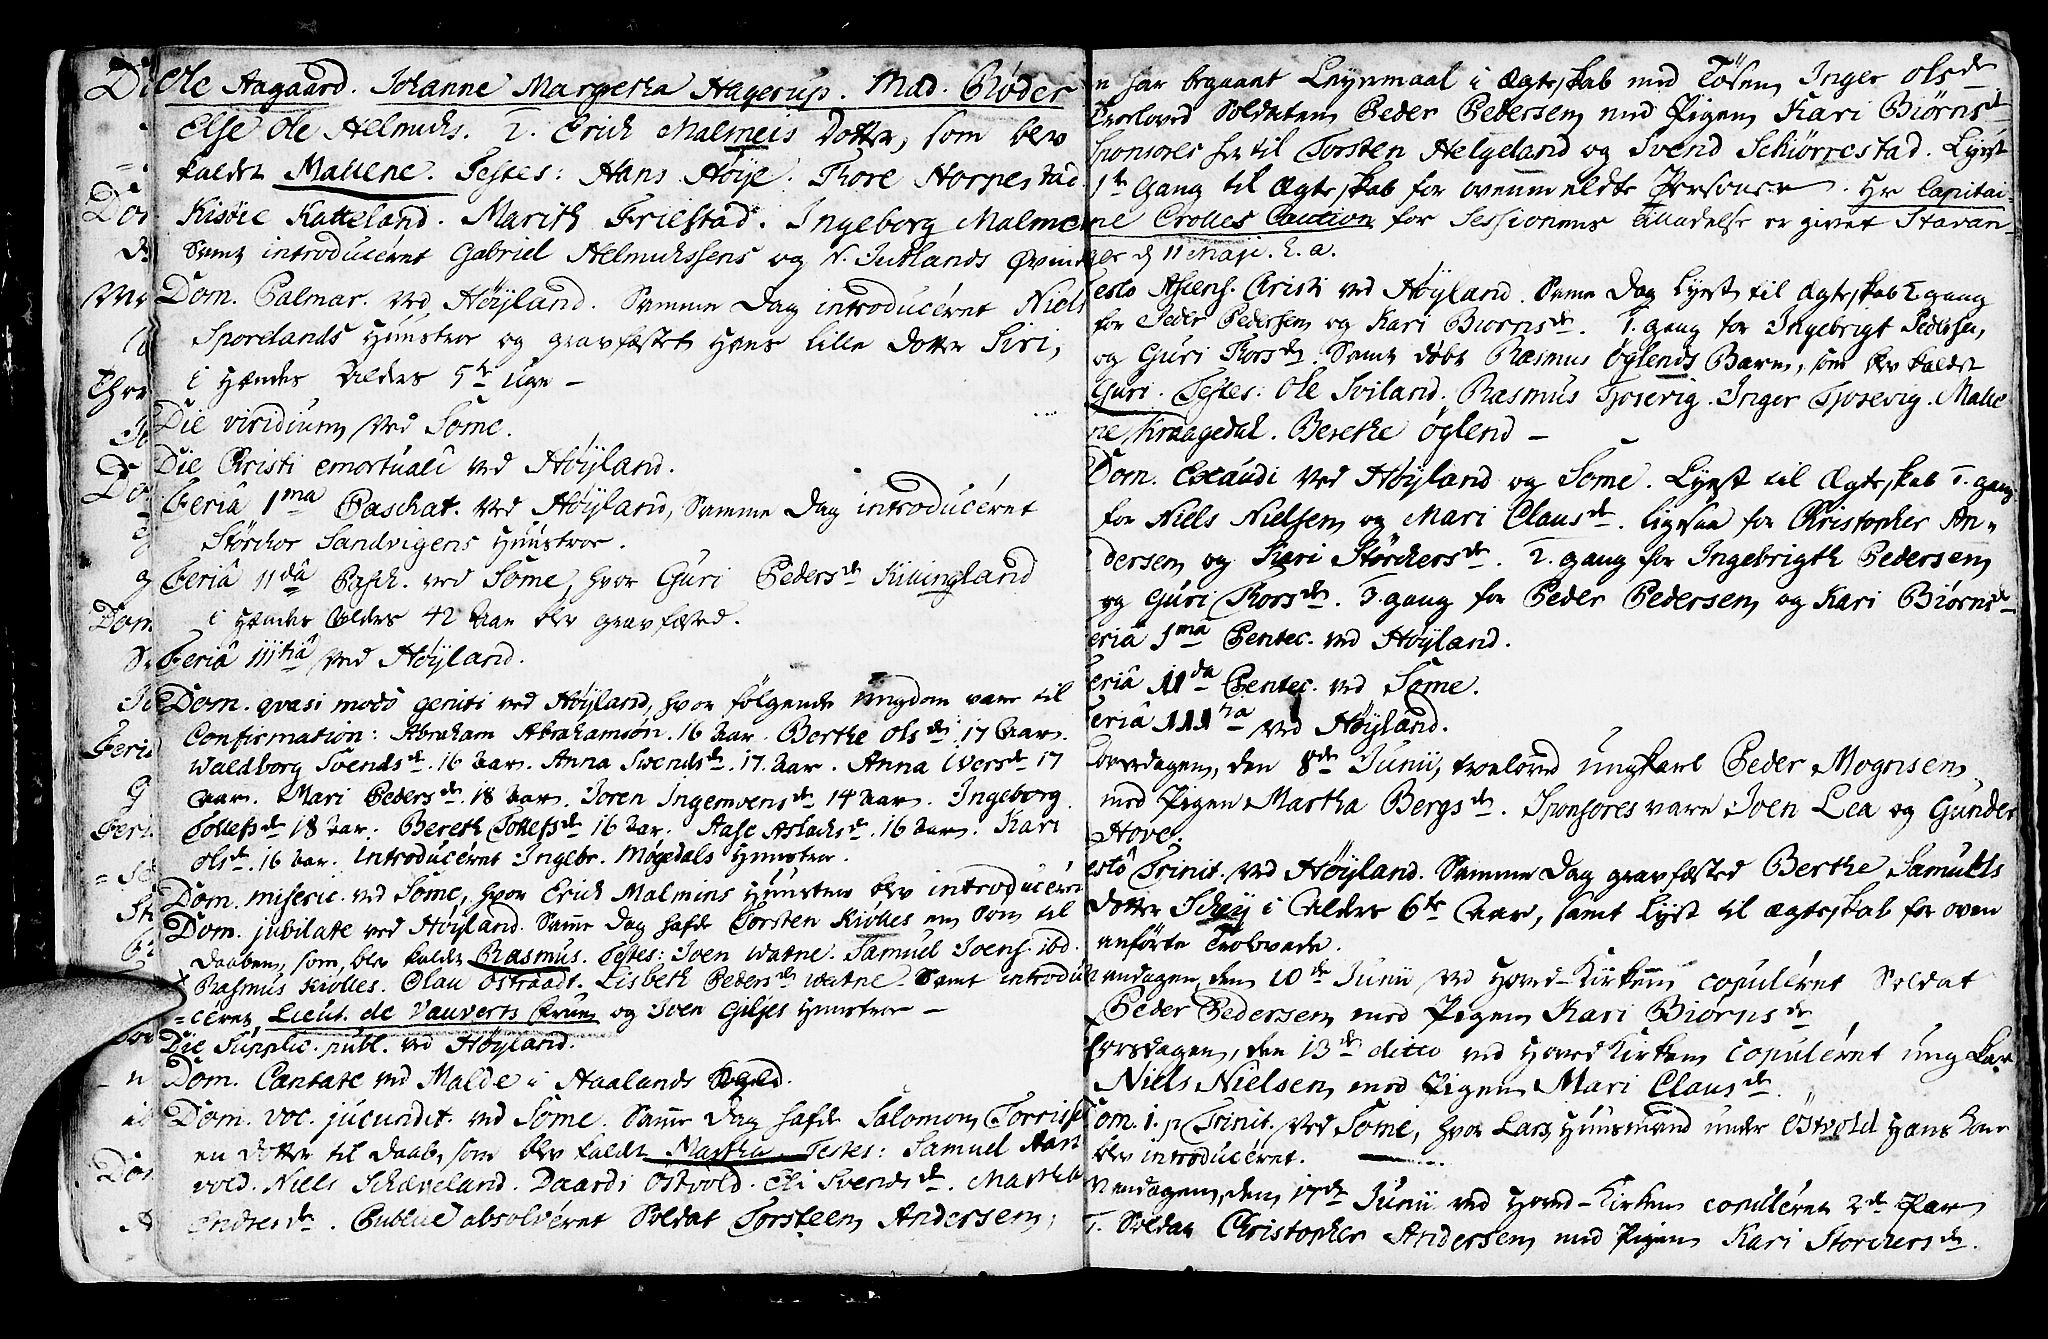 Ole Aagaard. Johanne Margretha Hagerup. Mad. Röder
Else Ole Helmichs. 2. Erich Malmeis Dotter, som blev
kaldet Malene. Testes: Hans Höye. Thore Norpestad
Kisöie Katteland. Marith Friestad. Ingeborg Malme
Samt introduceret Gabriel Helmichsens og N. Jutlands Qvind
Dom. Palmar. ved Höyland. Samme Dag introduceret Niels
Sporelands Huustroe og gravfæstet Hans lille Dotter Siri,
i Hendes Alders 5te Uge –
Die viridium ved Some.
Die Christi emortuali ved Höyland.
Feriâ 1ma Paschat. ved Höyland, Samme Dag introduceret
Störchor Sandvigens Huustroe.
Feriâ 11dâ Pasch. ved Some, hvor Guri Pedersdr Kivingland
i Hendes Alders 42 Aar blev gravfæsted.
Feriâ 111tiâ ved Höyland.
Dom. qvasi modo geniti ved Höyland, hvor fölgende Ungdom vare til
Confirmation: Abraham Abrahamsön. 16 Aar. Berthe Olsdr 17 Aar.
Waldborg Svendsdr. 16 Aar. Anna Svendsdr. 17. Aar. Anna Iversdr 17
Aar. Mari Pedersdr. 18 Aar. Joren Ingemoensdr 14 Aar. Ingeborg
Tollefsdr 18 Aar. Bereth Tollefsdr 16 Aar. Aase Aslachsdr. 16 Aar. Kari
Olsdr. 16 Aar. Introduceret Ingebr. Mogedals Huustroe.
Dom. miseric. ved Some, hvor Erich Malmins Huustroe blev introducéret
Dom. jubilate ved Höyland. Samme Dag hafde Torsten Kiölles en Son til
Daaben, som blev kaldet Rasmus. Testes: Joen Watne. Samuel Joens. ibd.
Rasmus Kiölles. Olau Östraadt. Lisbeth Pedersdr Watne. Samt introdu
=céret Lieut. de Vauverts Frue og Joen Giljes Huustroe –
Die Supplic. publ. ved Höyland.
Dom. Cantate ved Malde i Haalands Sogn.
Dom. voc. jucundit. ved Some. Samme Dag hafde Salomon Torris
en Dotter til Daab, som blev kaldet Martha. Testes: Samuel Aart
vold. Niels Schæveland. Daardi Östvold. Eli Svendsdr. Martha
Endresdr. Publice absolvéret Soldat Torsteen Andersen,
n har begaaet Leyermaal i Ægteskab med Tösen Inger Olsdr
Trolovet Soldaten Peder Pedersen med Pigen Kari Biörnsdr
Sponsores her til Torsten Helgeland og Svend Schiörrestad. Lyst
1te Gang til Ægteskab for ovenmeldte Personer. Hr Capitai-
ne Crolles Caution for Sessionens tilladelse er givet Stavan-
ger d 11 Maji. h. a.
esto Ascens. Christi ved Höyland. Same Dag Lyst til Ægteskab 2 gang
for Peder Pedersen og Kari Biornsdr. 1. gang for Ingebrigt Pedersen,
og Guri Thorsdr. Samt döbt Rasmus Öglends Barn, som blev kaldet
Guri. Testes: Ole Sviland. Rasmus Tjosevig. Inger Tjosevig. Male
ne Kraagedal. Berethe Öglend –
Dom. Exaudi ved Höyland og Some. Lyst til Ægteskab 1. gang
for Niels Nielsen og Mari Clausdr. ligesaa for Christopher An=
dersen og Kari Störchersdr. 2. gang for Ingebrigth Pedersen
og Guri Thorsdr. 3. gang for Peder Pedersen og Kari Biörnsdr
eriâ 1ma Pentec. ved Höyland.
eriâ 11da Pentec. ved Some.
eriâ 111tia ved Höyland.
Löverdagen, den 8de Junii, trolovet ungkarl Peder Mognsen
med Pigen Martha Bergsdr. Sponsores vare Joen Lea og Gunder
Hove.
estô Trinit. ved Höyland. Samme Dag gravfæsted Berthe Samuels
Dotter Schej i Alders 6te Aar, samt Lyst til Ægteskab for oven
anförte Trolovede.
Mandagen, den 10de Junii ved Hoved-Kirken copulêret Soldat
Peder Pedersen med Pigen Kari Biornsdr
Torsdagen, den 13de ditto ved Hoved Kirken copulêret ungkarl
Niels Nielsen med Pigen Mari Clausdr.
Dom. 1. p Trinit. ved Some, hvor Lars Huusmand under Östvold Hans Kone
blev introducéret.
Mandagen, den 17de Junii ved Hoved-Kirken copuléret 2de Par
1. Soldat Christopher Andersen med Pigen Kari Storchersdr.